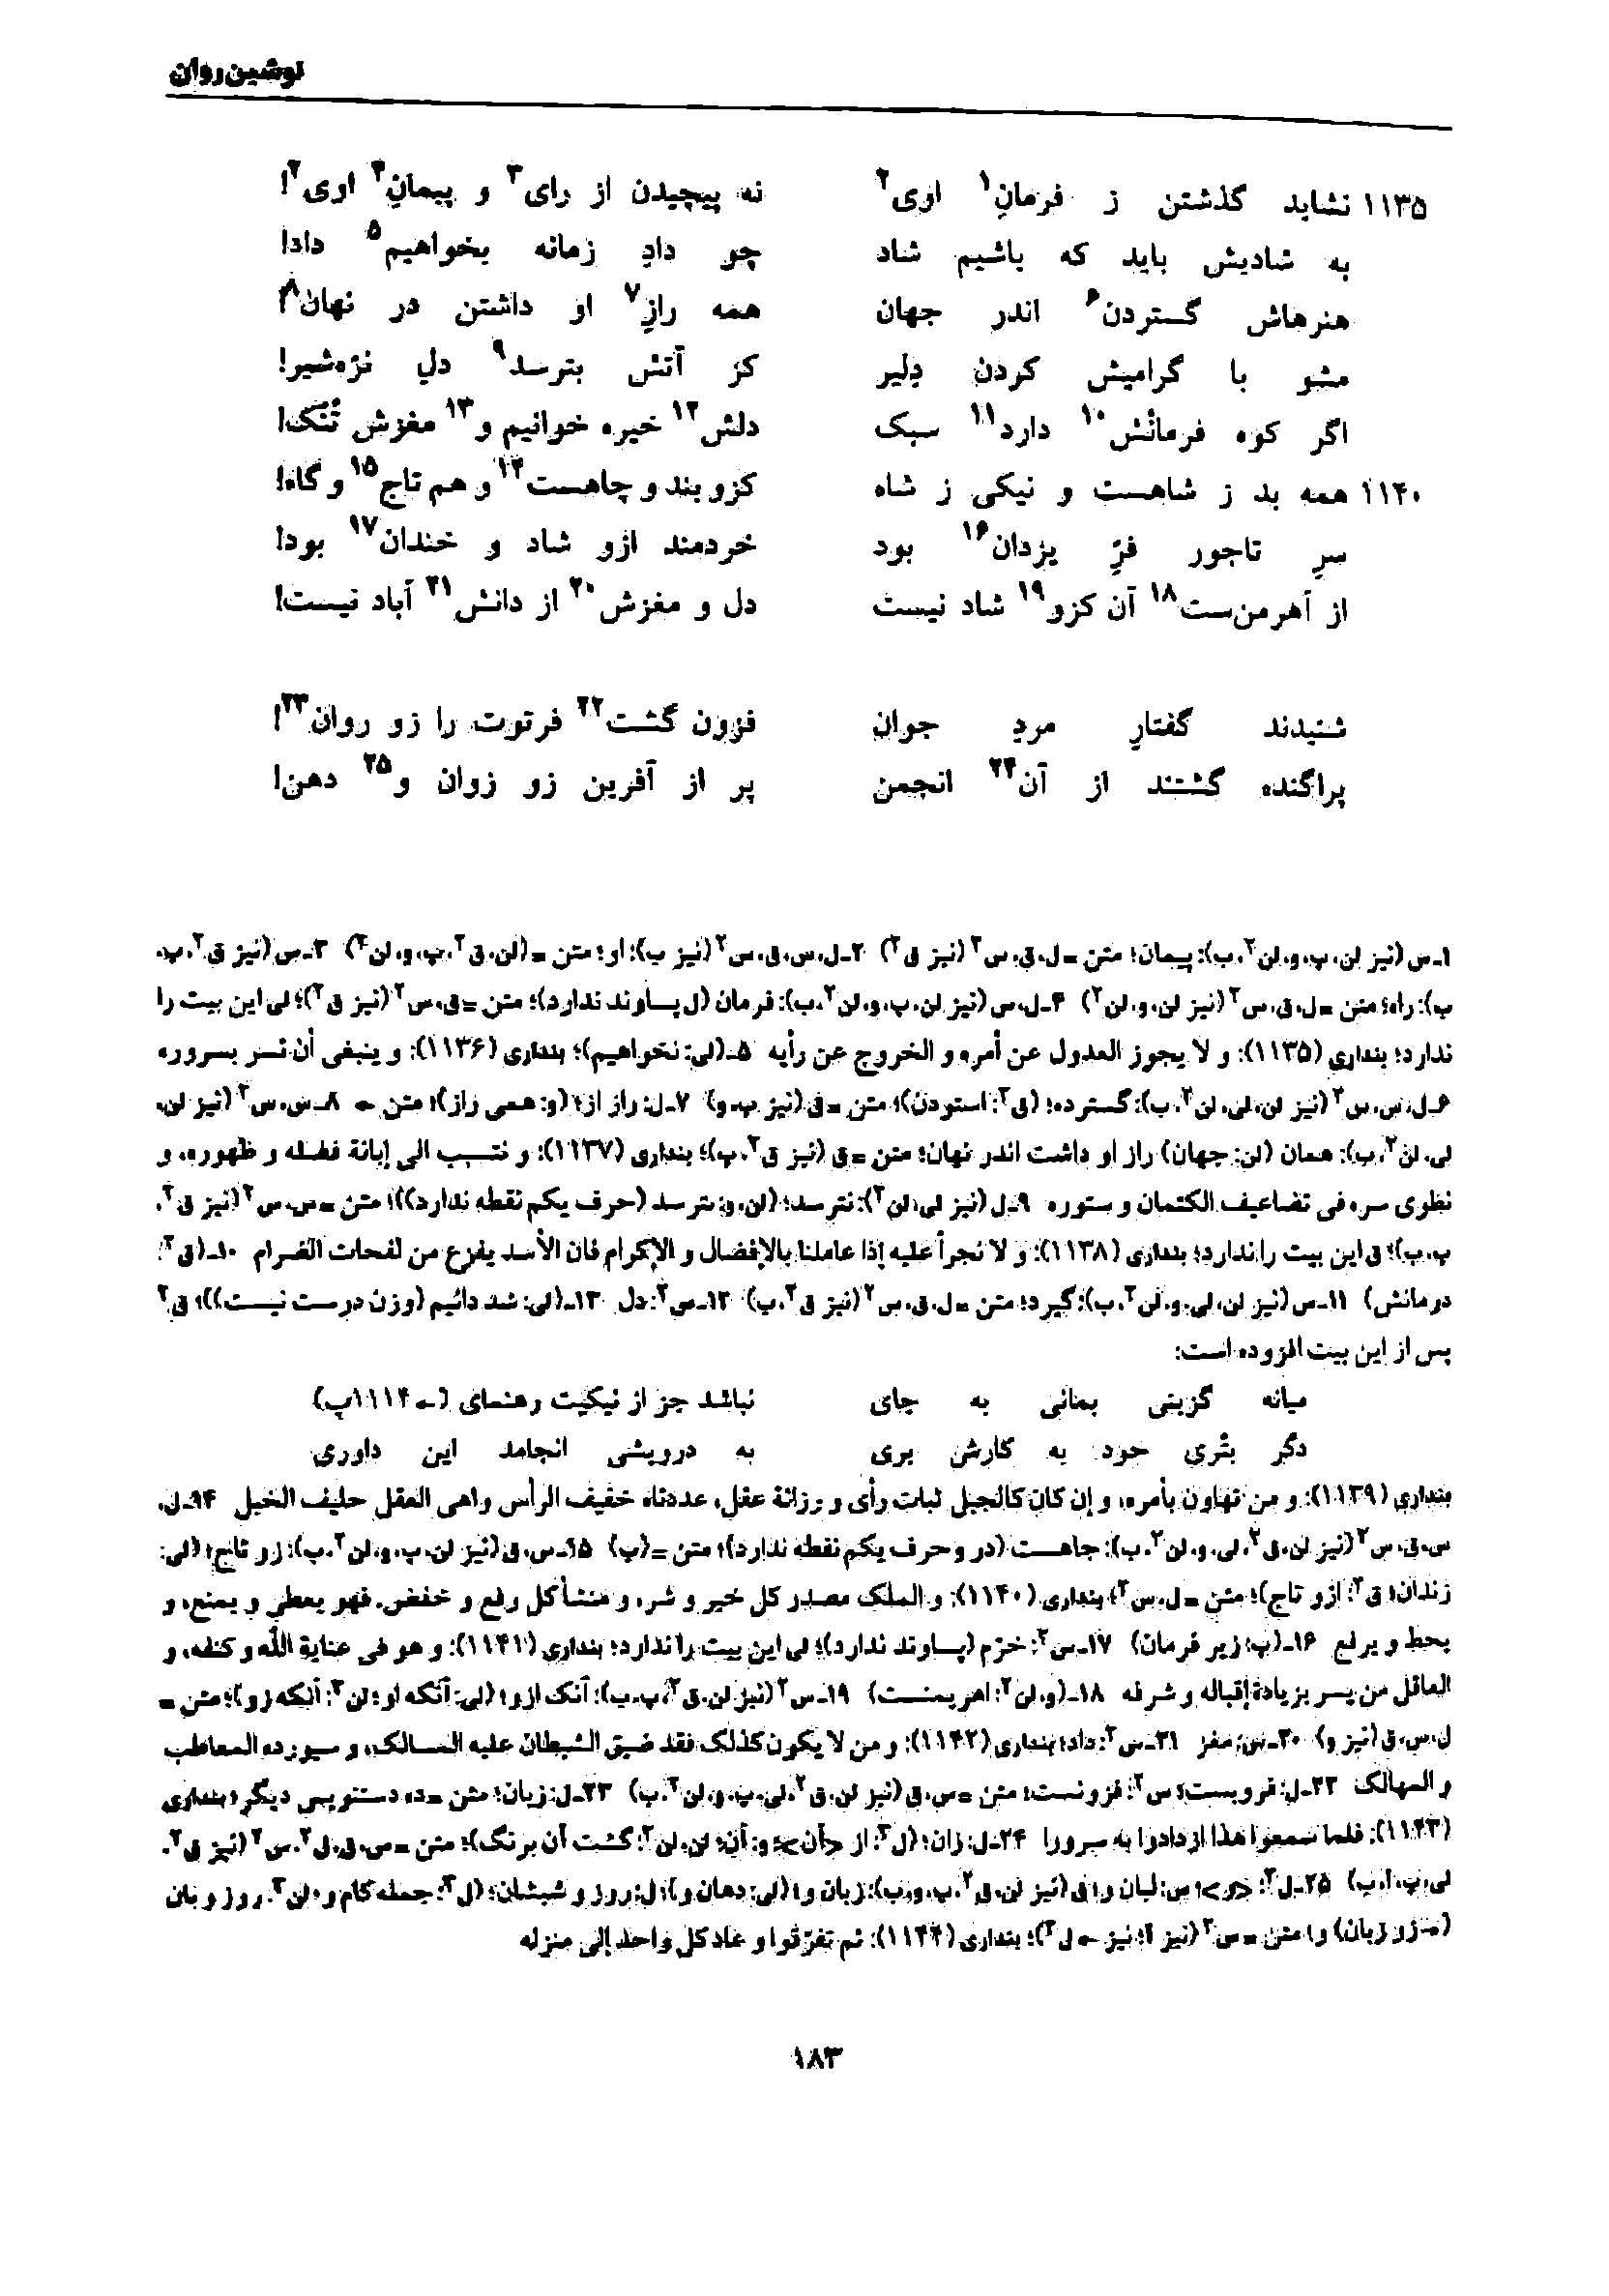 نوشین‌روان
۱۱۳۵ نشاید گذشتن ز فرمانِ۱ اوی۲ نه پیچیدن از رای۳ و پیمانِ۴ اوی۲!
به شادیش باید که باشیم شاد چو دادِ زمانه بخواهیم۵ داد!
هنرهاش گستردن۶ اندر جهان همه رازِ۷ او داشتن در نهان۸!
مشو با گرامیش کردن دلیر کز آتش بترسد۹ دلِ نرّه‌شیر!
اگر کوه فرمانْش۱۰ دارد۱۱ سبک دلش۱۲ خیره خوانیم و۱۳ مغزش تُنُک!
۱۱۴۰ همه بد ز شاهست و نیکی ز شاه کزو بند و چاهست۱۴ و هم تاج۱۵ و گاه!
سرِ تاجور فرِّ یزدان۱۶ بود خردمند ازو شاد و خندان۱۷ بود!
از آهرمن‌ست۱۸ آن کزو۱۹ شاد نیست دل و مغزش۲۰ از دانش۲۱ آباد نیست!
شنیدند گفتارِ مردِ جوان فزون گشت۲۲ فرتوت را زو روان۲۳!
پراگنده گشتند از آن۲۴ انجمن پر از آفرین زو زوان و۲۵ دهن!
۱ـ س (نیز لن، پ، و، لن۲، ب): پیمان؛ متن = ل، ق، س۲ (نیز ق۲) ۲ـ ل، س، ق، س۲ (نیز ب): او؛ متن = (لن، ق۲، پ، و، لن۲) ۳ـ س (نیز ق۲، پ،
ب): راه؛ متن = ل، ق، س۲ (نیز لن، و، لن۲) ۴ـ ل، س (نیز لن، پ، و، لن۲، ب): فرمان (ل پساوند ندارد)؛ متن = ق، س۲ (نیز ق۲)؛ لی این بیت را
ندارد؛ بنداری (۱۱۳۵): و لا یجوز العدول عن أمره و الخروج عن رأیه ۵ـ (لی: نخواهیم)؛ بنداری (۱۱۳۶): و ینبغی أن نسر بسروره
۶ـ ل، س، س۲ (نیز لن، لی، لن۲، ب): گسترده؛ (ق۲: استودن)؛ متن = ق (نیز پ، و) ۷ـ ل: راز از؛ (و: همی راز)؛ متن ← ۸ـ س، س۲ (نیز لن،
لی، لن۲، ب): همان (لن: جهان) راز او داشت اندر نهان؛ متن = ق (نیز ق۲، پ)؛ بنداری (۱۱۳۷): و نتسبب الی إبانة فضله و ظهوره، و
نطوی سره فی تضاعیف الکتمان و ستوره ۹ـ ل (نیز لی، لن۲): نترسد؛ (لن، و: بترسد (حرف یکم نقطه ندارد))؛ متن = س، س۲ (نیز ق۲،
پ، ب)؛ ق این بیت را ندارد؛ بنداری (۱۱۳۸): و لا نجرأ علیه إذا عاملنا بالإفضال و الإکرام فان الأسد یفزع من لفحات الضرام ۱۰ـ (ق۲:
درمانش) ۱۱ـ س (نیز لن، لی، و، لن۲، ب): گیرد؛ متن = ل، ق، س۲ (نیز ق۲، پ) ۱۲ـ س۲: دل ۱۳ـ (لی: شد دائیم (وزن درست نیست))؛ ق۲
پس از این بیت افزوده است:
میانه گزینی بمانی به جای نباشد جز از نیکیت رهنمای (← ۱۱۱۴پ)
دگر بتّری خود به کارش بری به درویشی انجامد این داوری
بنداری (۱۱۳۹): و من تهاون بأمره، و إن کان کالجبل ثبات رأی و رزانة عقل، عددناه خفیف الرأس واهی العقل حلیف الخبل ۱۴ـ ل،
س، ق، س۲ (نیز لن، ق۲، لی، و، لن۲، ب): جاهست (در و حرف یکم نقطه ندارد)؛ متن = (پ) ۱۵ـ س، ق (نیز لن، پ، و، لن۲، ب): زو تاج؛ (لی:
زندان؛ ق۲: ازو تاج)؛ متن = ل، س۲؛ بنداری (۱۱۴۰): و الملک مصدر کل خیر و شر، و منشأ کل رفع و خفض. فهو یعطی و یمنع، و
یحط و یرفع ۱۶ـ (پ: زیر فرمان) ۱۷ـ س۲: خزم (پساوند ندارد)؛ لی این بیت را ندارد؛ بنداری (۱۱۴۱): و هو فی عنایة الله و کنفه، و
العاقل من یسر بزیادة إقباله و شرفه ۱۸ـ (و، لن۲: اهریمنست) ۱۹ـ س۲ (نیز لن، ق۲، پ، ب): آنک ازو؛ (لی: آنکه او؛ لن۲: آنکه زو)؛ متن =
ل، س، ق (نیز و) ۲۰ـ س: مغز ۲۱ـ س۲: داد؛ بنداری (۱۱۴۲): و من لا یکون کذلک فقد ضیق الشیطان علیه المسالک، و سیورده المعاطب
و المهالک ۲۲ـ ل: فروبست؛ س۲: فزونست؛ متن = س، ق (نیز لن، ق۲، لی، پ، و، لن۲، ب) ۲۳ـ ل: زبان؛ متن = ده دستنویس دیگر؛ بنداری
(۱۱۴۳): فلما سمعوا هذا ازدادوا به سرورا ۲۴ـ ل: زان؛ (ل۳: از <آن>؛ و: آن؛ لن، لن۲: گشت آن برنگ)؛ متن = س، ق، ل۲، س۲ (نیز ق۲،
لی، پ، آ، ب) ۲۵ـ ل۲: <و>؛ س: لبان و؛ ق (نیز لن، ق۲، پ، و، ب): زبان و؛ (لی: دهان و)؛ ل: روز و شبشان؛ (ل۳: جمله کام و؛ لن۲: روز و بان
(= زو زبان) و)؛ متن = س۲ (نیز آ؛ نیز ← ل۲)؛ بنداری (۱۱۴۴): ثم تفرّقوا و عاد کل واحد إلی منزله
۱۸۳